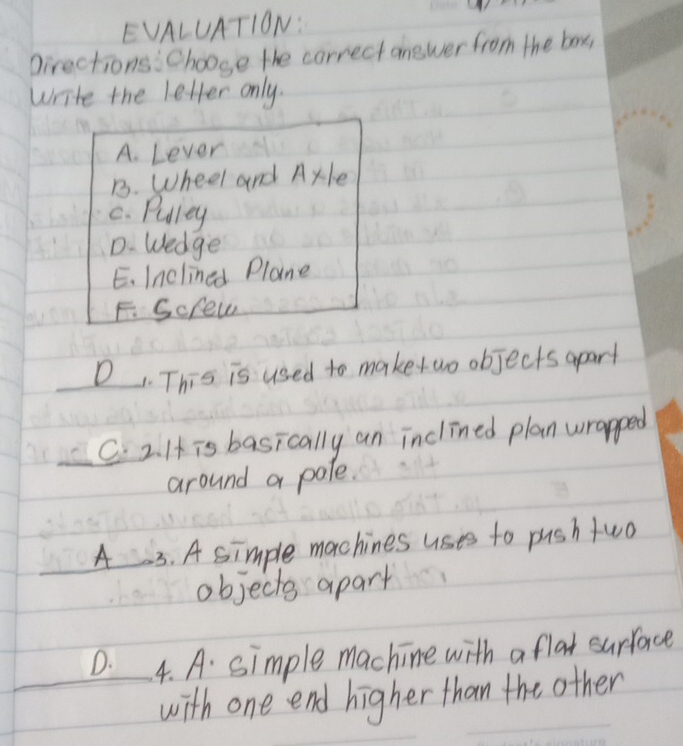 EVALUATION:
Directions: Choose the correct answer from the box,
Write the letter only.
A. Lever
B. Wheel and Axle
C. Pulley
D. Wedge
E. Inclined Plane
F. Screw
D 1. This is used to make two objects apart
C. 2. It is basically an inclined plan wrapped
around a pole.
A 3. A simple machines uses to push two
objects apart
D. 4. A. simple machine with a flat surface
with one end higher than the other